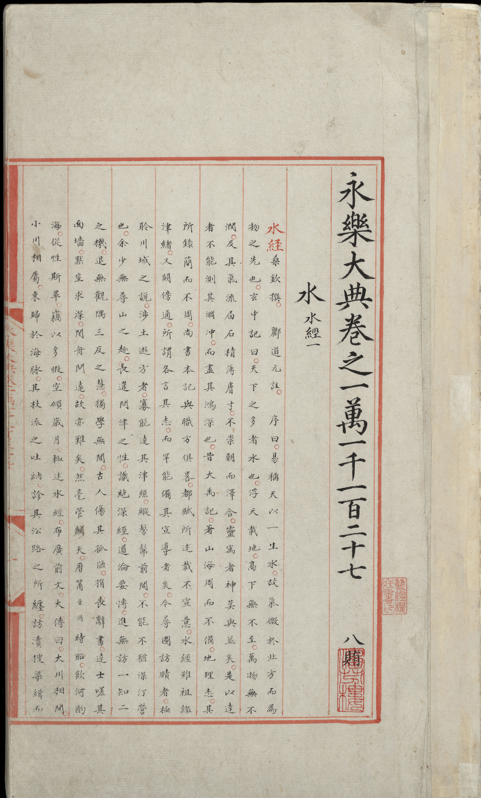 永樂大典卷之一萬一千一百二十七 八賄
水 水經一
水經 桑欽撰。酈道元註。序曰。易稱天以一生水。故氣微於北方而爲
物之先也。玄中記曰。天下之多者水也。浮天載地。高下無不至。萬物無不
潤。及其氣流屆石。精薄膚寸。不崇朝而澤合。靈寓者。神莫與並矣。是以達
者不能測其淵沖。而盡其鴻深也。昔大禹記。著山海。周而不備。地理志。其
所錄簡而不周。尚書本記與職方俱畧。都賦所述。裁不宣意。水經雖粗綴
津緒。又闕傍通。所謂各言其志。而罕能備其宣導者矣。今尋圖訪賾者。極
聆川域之說。涉土遊方者。寡能達其津照。縱髣髴前聞。不能不猶深汀營
也。余少無尋山之趣。長違問津之性。識絕深經。道淪要博。進無訪一知二
之機。退無觀隅三反之慧。獨學無聞。古人傷其孤陋。捐喪辭書。達士嗟其
面墻。默室求深。閉舟問遠。故亦難矣。然毫管窺天。歷筩時昭。飲河酌
海。從性斯畢。竊以多暇。空傾歲月。輒述水經。布廣前文。大傳曰。大川相間
小川相屬。東歸於海。脉其枝流之吐納。診其沿路之所纏。訪瀆搜渠。緝而